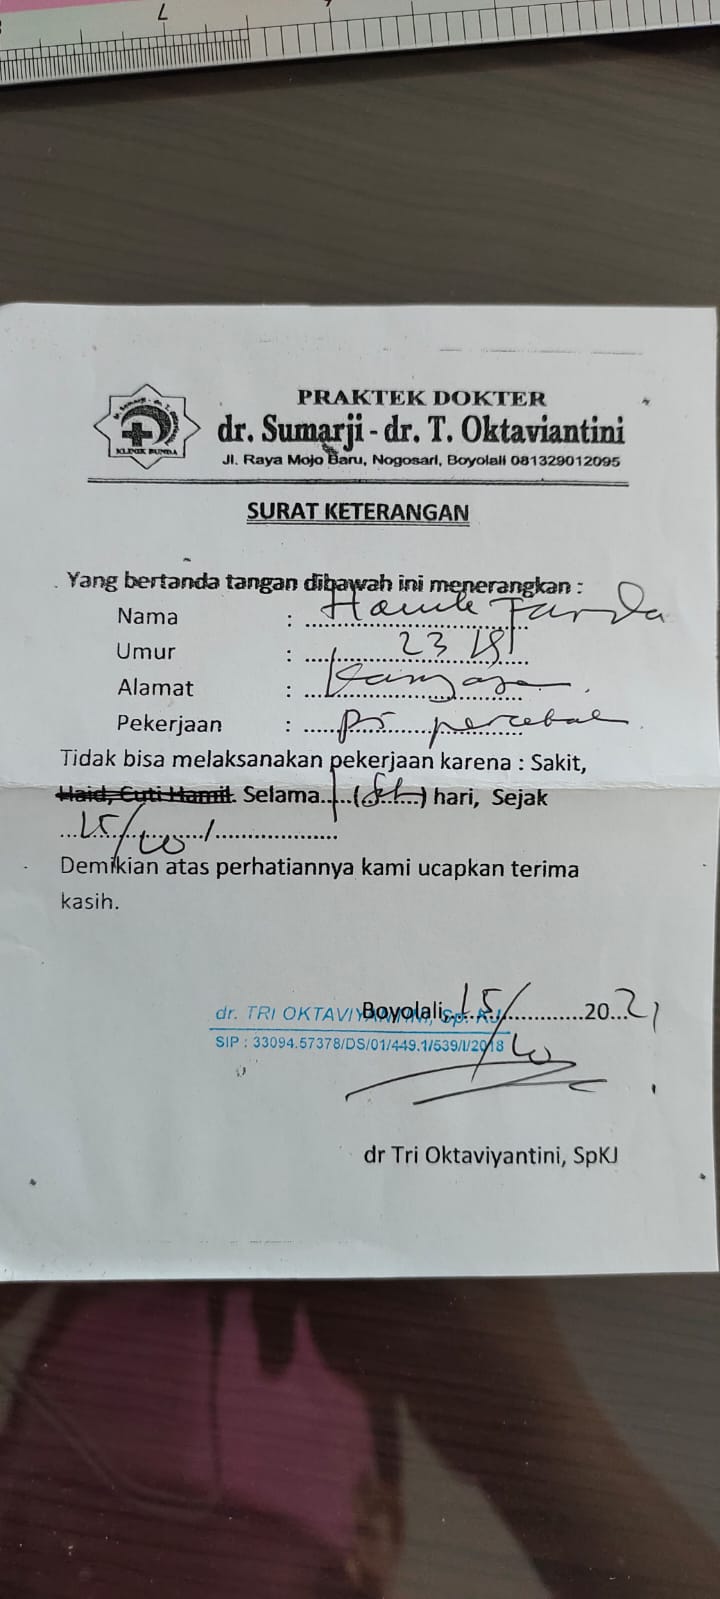 7
PRAKTEK DOKTER
dr. Sumarji - dr. T. Oktaviantini
KLINIK BUNDA
Jl. Raya Mojo Baru, Nogosari, Boyolali 081329012095
SURAT KETERANGAN
Yang bertanda tangan dibawah ini menerangkan :
Nama :
Umur : 23
Alamat :
Pekerjaan :
Tidak bisa melaksanakan pekerjaan karena : Sakit,
Haid, Cuti Hamil. Selama.....(.........) hari, Sejak
15/10/
Demikian atas perhatiannya kami ucapkan terima
kasih.
Boyolali, 15/10 2021
dr. TRI OKTAVIYANTINI, Sp. KJ
SIP : 33094.57378/DS/01/449.1/539/I/2018
dr Tri Oktaviyantini, SpKJ